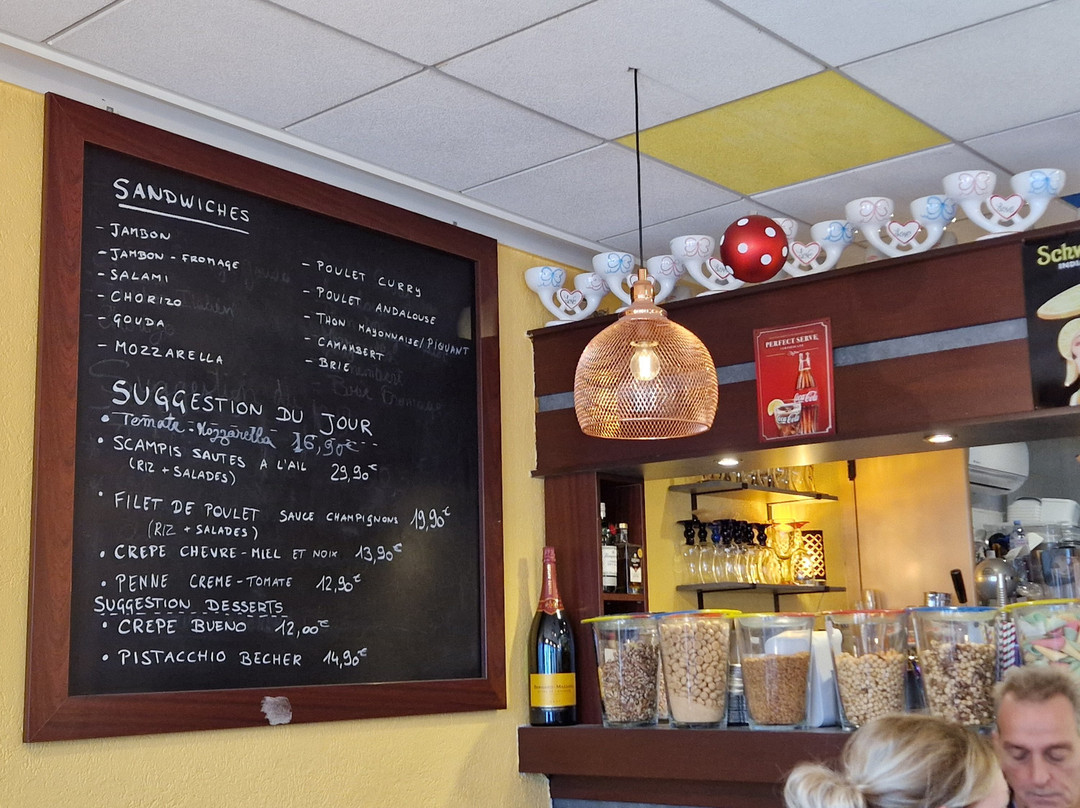 SANDWICHES
- JAMBON
- JAMBON - FROMAGE
- SALAMI
- CHORIZO
- GOUDA
- MOZZARELLA
- POULET CURRY
- POULET ANDALOUSE
- THON MAYONNAISE/PIQUANT
- CAMAMBERT
- BRIE
SUGGESTION DU JOUR
• Tomate - Mozzarella 16,90€
• SCAMPIS SAUTES A L'AIL 29,90€
(RIZ + SALADES)
• FILET DE POULET SAUCE CHAMPIGNONS 19,90€
(RIZ + SALADES)
• CREPE CHEVRE - MIEL ET NOIX 13,90€
• PENNE CREME - TOMATE 12,90€
SUGGESTION DESSERTS
• CREPE BUENO 12,00€
• PISTACCHIO BECHER 14,90€
PERFECT SERVE
Coca-Cola
Schw
INDI